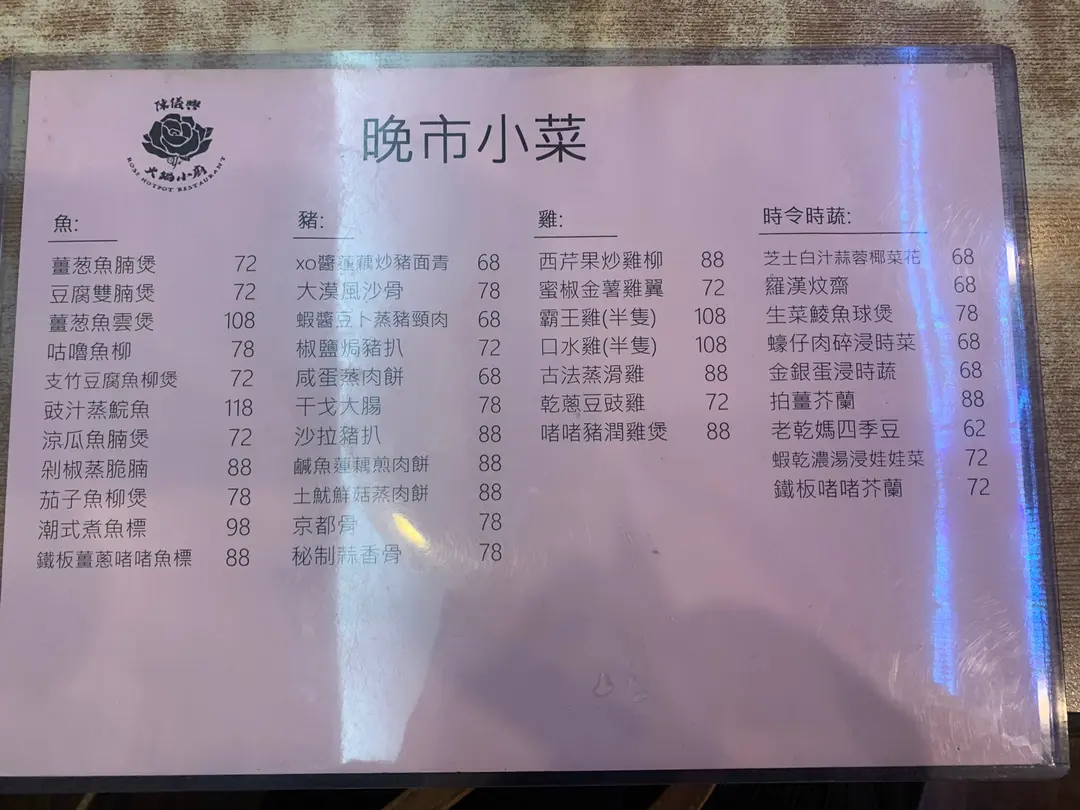 儀豐
火鍋小廚
ROSE HOTPOT RESTAURANT
晚市小菜
魚:
薑葱魚腩煲 72
豆腐雙腩煲 72
薑葱魚雲煲 108
咕嚕魚柳 78
支竹豆腐魚柳煲 72
豉汁蒸鯇魚 118
涼瓜魚腩煲 72
剁椒蒸脆腩 88
茄子魚柳煲 78
潮式煮魚標 98
鐵板薑蔥啫啫魚標 88
豬:
xo醬蓮藕炒豬面青 68
大漠風沙骨 78
蝦醬豆卜蒸豬頸肉 68
椒鹽焗豬扒 72
咸蛋蒸肉餅 68
干戈大腸 78
沙拉豬扒 88
鹹魚蓮藕煎肉餅 88
土魷鮮菇蒸肉餅 88
京都骨 78
秘制蒜香骨 78
雞:
西芹果炒雞柳 88
蜜椒金薯雞翼 72
霸王雞(半隻) 108
口水雞(半隻) 108
古法蒸滑雞 88
乾蔥豆豉雞 72
啫啫豬潤雞煲 88
時令時蔬:
芝士白汁蒜蓉椰菜花 68
羅漢炆齋 68
生菜鯪魚球煲 78
蠔仔肉碎浸時菜 68
金銀蛋浸時蔬 68
拍薑芥蘭 88
老乾媽四季豆 62
蝦乾濃湯浸娃娃菜 72
鐵板啫啫芥蘭 72